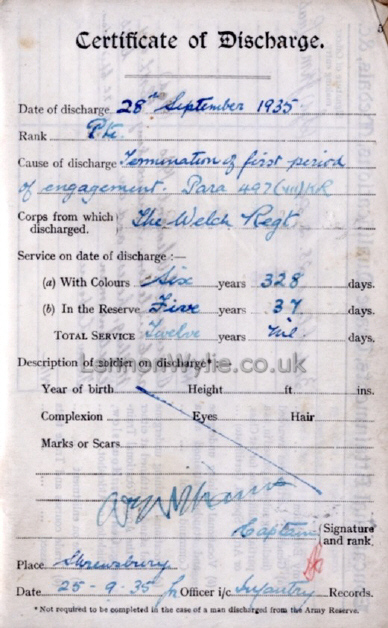 Certificate of Discharge.
Date of discharge 28th September 1935
Rank Pte.
Cause of discharge Termination of first period
of engagement. Para 497(VII)KR
Corps from which discharged. The Welch Regt
Service on date of discharge :—
(a) With Colours Six years 328 days.
(b) In the Reserve Five years 37 days.
TOTAL SERVICE Twelve years Nil days.
Description of soldier on discharge*
Year of birth Height ft. ins.
Complexion Eyes Hair
Marks or Scars
Captain Signature and rank.
Place Shrewsbury
Date 25-9-35 Officer i/c Infantry Records.
*Not required to be completed in the case of a man discharged from the Army Reserve.